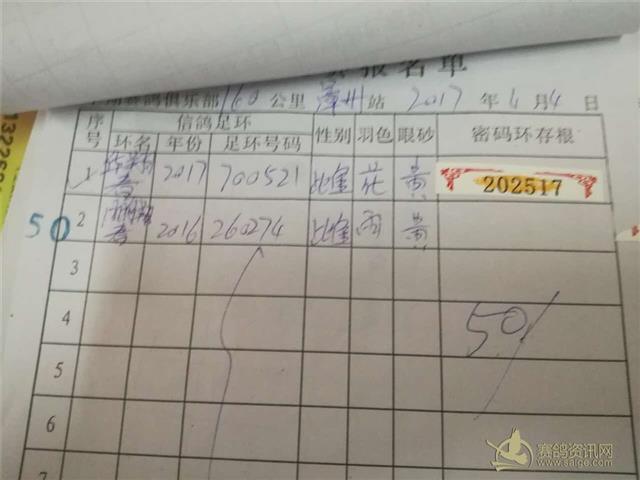 报名单
赛鸽俱乐部160公里漳州站 2017年4月4日
序号 信鸽足环 性别 羽色 眼砂 密码环存根
环名 年份 足环号码
1 2017 700521 雌 花 黄 202517
50 2 2016 260274 雌 雨 黄
3
4 50
5
6
7
赛鸽资讯网
www.saige.com